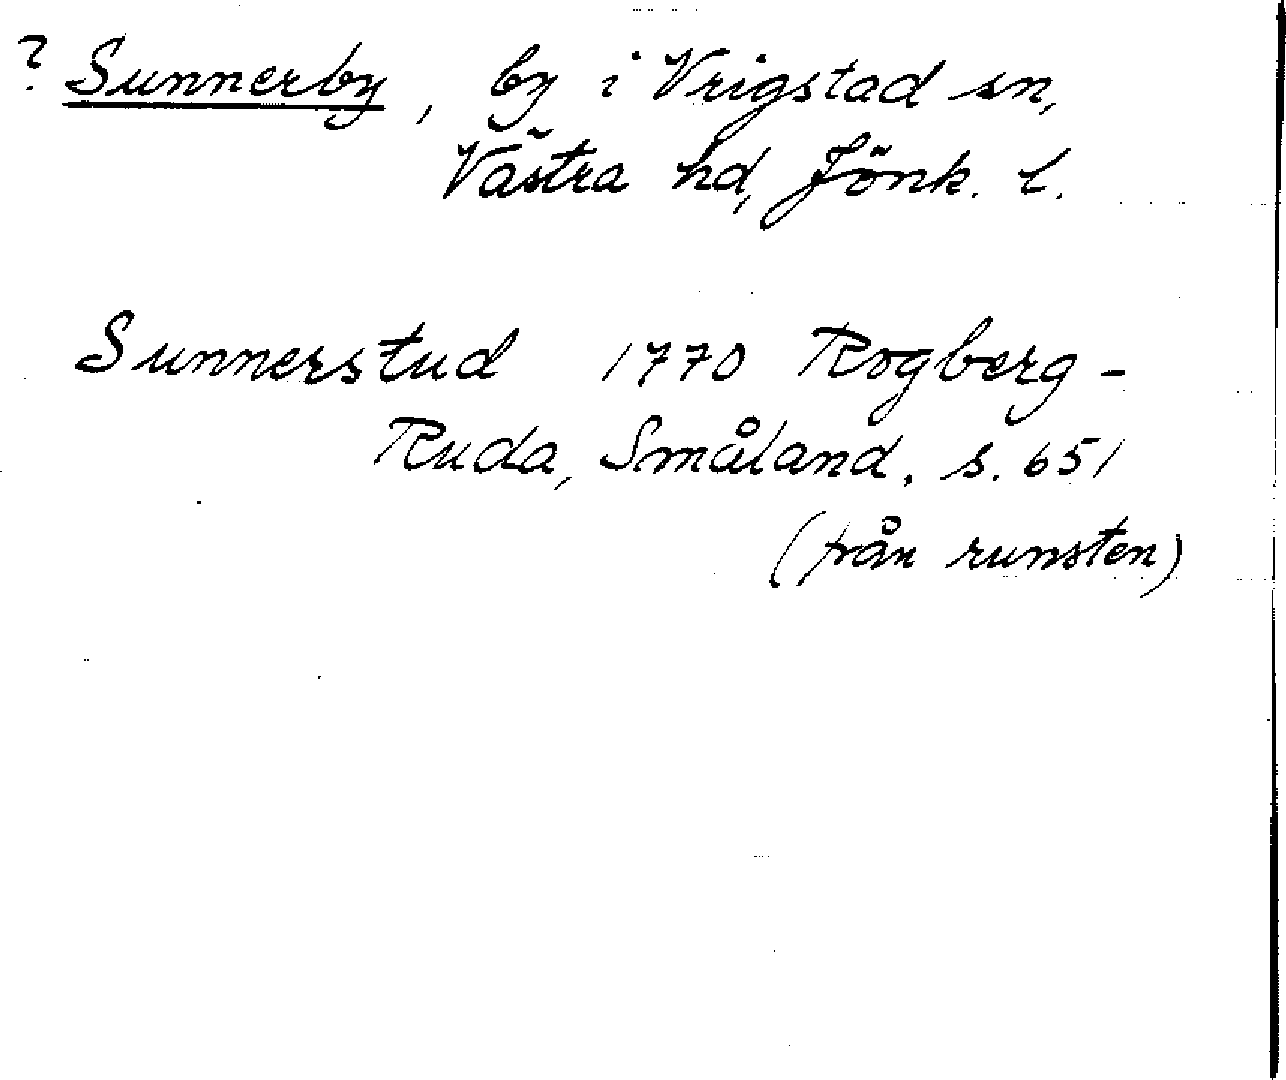 ? Sunnerby, by i Vrigstad sn,
Västra hd, Jönk. l.
Sunnerstud 1770 Rogberg-
Ruda, Småland. s. 651
(från runsten)